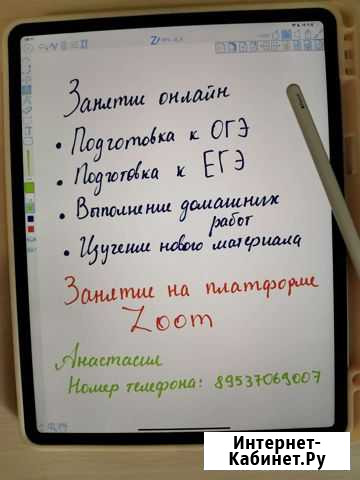 Занятие онлайн
• Подготовка к ОГЭ
• Подготовка к ЕГЭ
• Выполнение домашних
работ
• Изучение нового материала
Занятие на платформе
Zoom
Анастасия
Номер телефона: 89537069007
Интернет-
Кабинет.Ру